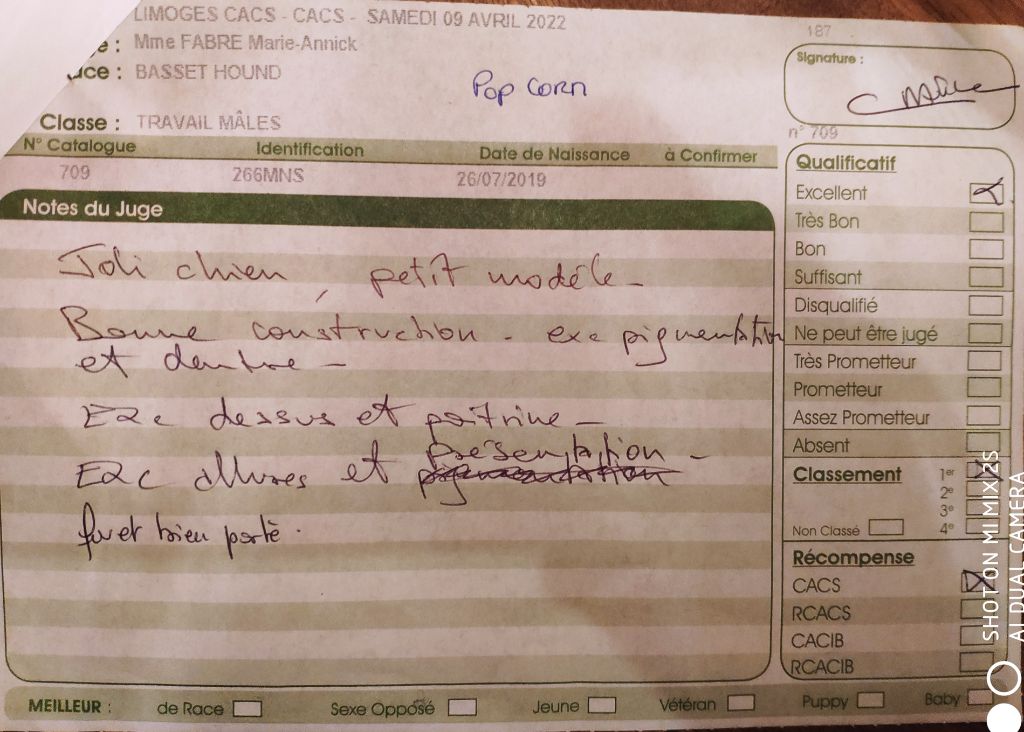 LIMOGES CACS - CACS - SAMEDI 09 AVRIL 2022
187
e : Mme FABRE Marie-Annick
ace : BASSET HOUND
Pop Corn
Signature :
Classe : TRAVAIL MÂLES
n° 709
N° Catalogue Identification Date de Naissance à Confirmer
709 266MNS 26/07/2019
Notes du Juge
Joli chien, petit modèle -
Bonne construction - exc pigmentation
et denture -
Exc dessus et poitrine -
Exc allures et présentation -
fouet bien porté.
Qualificatif
Excellent
Très Bon
Bon
Suffisant
Disqualifié
Ne peut être jugé
Très Prometteur
Prometteur
Assez Prometteur
Absent
Classement 1er
2e
3e
Non Classé 4e
Récompense
CACS
RCACS
CACIB
RCACIB
MEILLEUR : de Race Sexe Opposé Jeune Vétéran Puppy Baby
SHOT ON MI MIX 2S
AI DUAL CAMERA